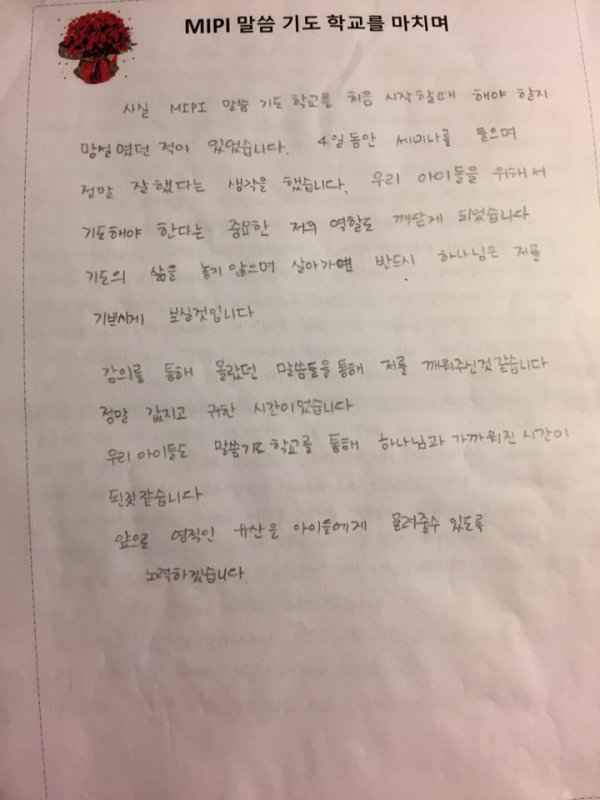 MIPI 말씀 기도 학교를 마치며
사실 MIPI 말씀 기도 학교를 처음 시작할때 해야 할지
망설였던 적이 있었습니다. 4일동안 세미나를 들으며
정말 잘했다는 생각을 했습니다. 우리 아이들을 위해서
기도해야 한다는 중요한 저의 역할도 깨닫게 되었습니다.
기도의 삶을 놓지 않으며 살아가면 반드시 하나님은 저를
기쁘시게 보실것입니다
강의를 통해 몰랐던 말씀들을 통해 저를 깨워주신것 같습니다
정말 값지고 귀한 시간이었습니다.
우리 아이들도 말씀기도 학교를 통해 하나님과 가까워진 시간이
된것같습니다
앞으로 영적인 유산을 아이들에게 물려줄수 있도록
노력하겠습니다